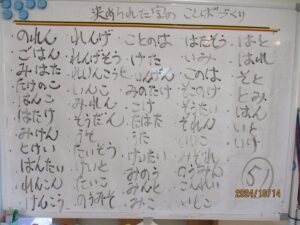 決められた字の ことばづくり
のれん
ごはん
みはた
たけのこ
はんこ
はたけ
みけん
とけい
はんたい
れんこん
けんこう
れんげ
れんげそう
れんこん
いんこ
みれん
そうだん
うそ
たいそう
けいと
たいこ
のうみそ
ことのは
けた
いんげん
みのたけ
こけ
たばた
うた
けったい
みのう
みんと
みこ
はたそう
いみ
このは
そのけ
そうたい
それん
いこい
みぞれ
のうみん
こんれい
いとこ
はと
はれ
そと
とみ
はん
いと
いけ
51
2024/10/14